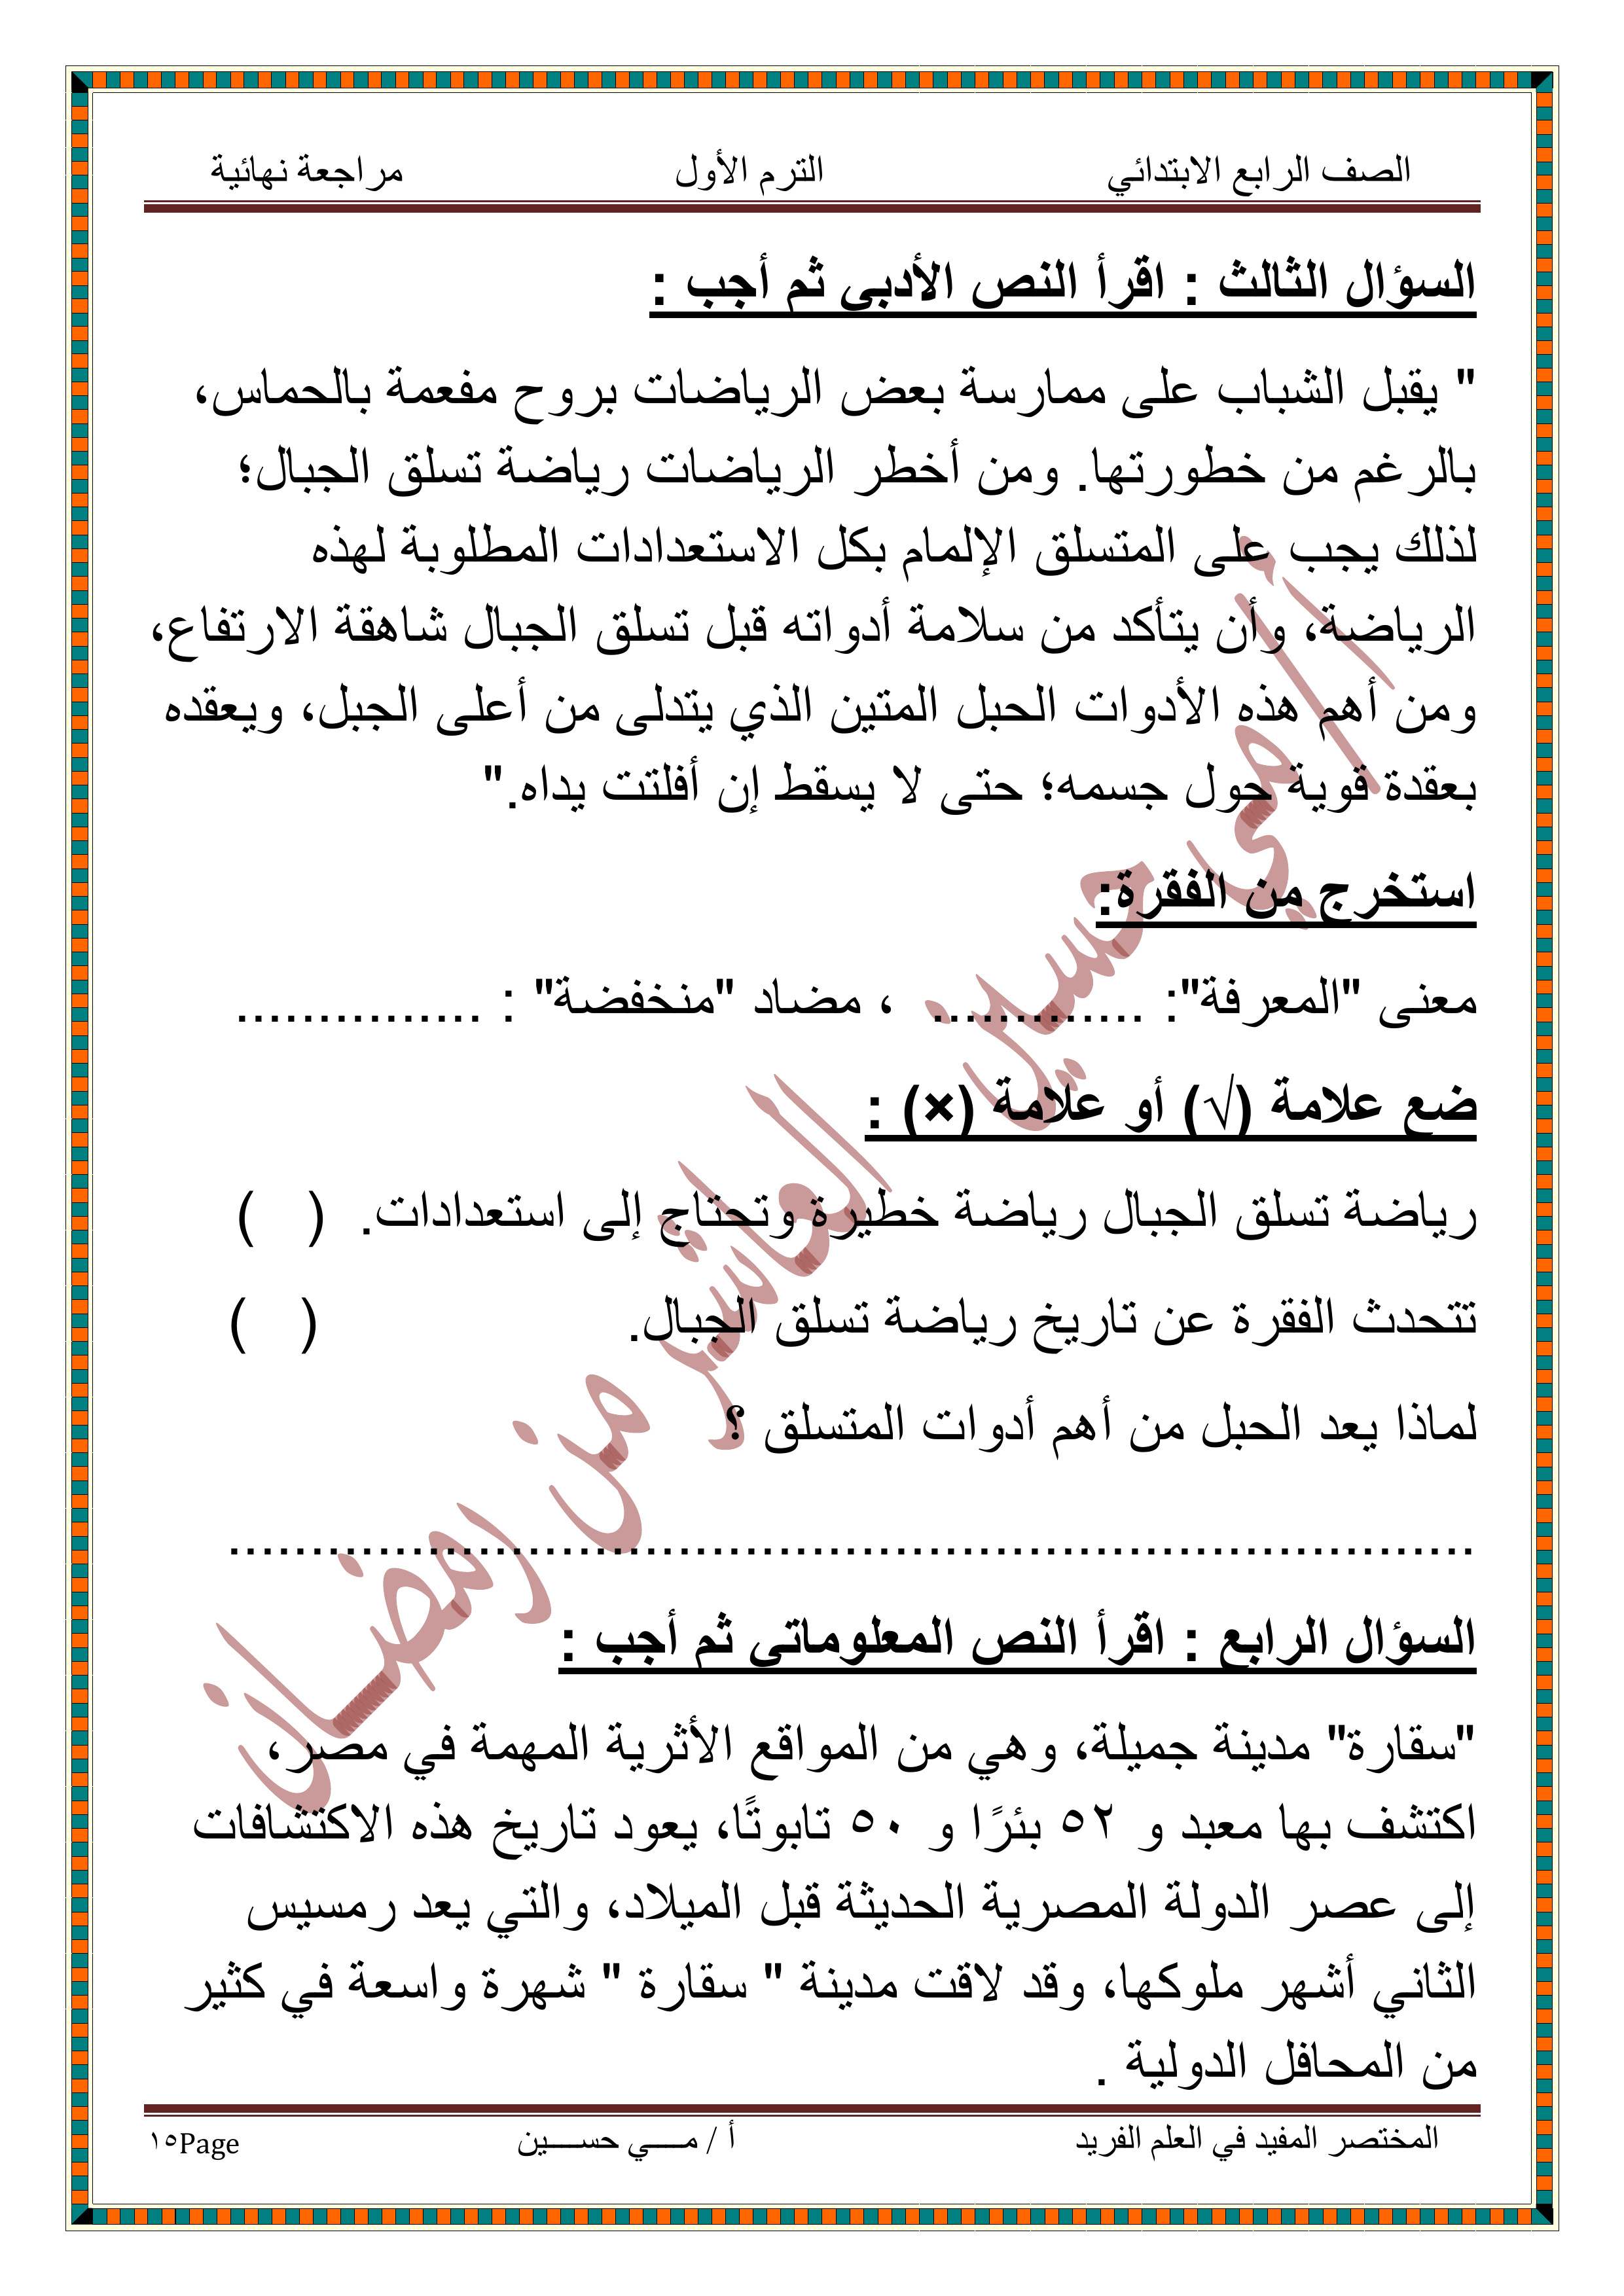 الصف الرابع الابتدائي الترم الأول مراجعة نهائية
السؤال الثالث : اقرأ النص الأدبي ثم أجب :
" يقبل الشباب على ممارسة بعض الرياضات بروح مفعمة بالحماس،
بالرغم من خطورتها. ومن أخطر الرياضات رياضة تسلق الجبال؛
لذلك يجب على المتسلق الإلمام بكل الاستعدادات المطلوبة لهذه
الرياضة، وأن يتأكد من سلامة أدواته قبل تسلق الجبال شاهقة الارتفاع،
ومن أهم هذه الأدوات الحبل المتين الذي يتدلى من أعلى الجبل، ويعقده
بعقدة قوية حول جسمه؛ حتى لا يسقط إن أفلتت يداه."
استخرج من الفقرة:
معنى "المعرفة": ............. ، مضاد "منخفضة" : ...............
ضع علامة (√) أو علامة (×) :
رياضة تسلق الجبال رياضة خطيرة وتحتاج إلى استعدادات. ( )
تتحدث الفقرة عن تاريخ رياضة تسلق الجبال. ( )
لماذا يعد الحبل من أهم أدوات المتسلق ؟
...........................................................................
السؤال الرابع : اقرأ النص المعلوماتي ثم أجب :
"سقارة" مدينة جميلة، وهي من المواقع الأثرية المهمة في مصر،
اكتشف بها معبد و ٥٢ بئرًا و ٥٠ تابوتًا، يعود تاريخ هذه الاكتشافات
إلى عصر الدولة المصرية الحديثة قبل الميلاد، والتي يعد رمسيس
الثاني أشهر ملوكها، وقد لاقت مدينة " سقارة " شهرة واسعة في كثير
من المحافل الدولية .
المختصر المفيد في العلم الفريد أ / مـــي حســـين ١٥Page
أ/ مي حسين العاشر من رمضان